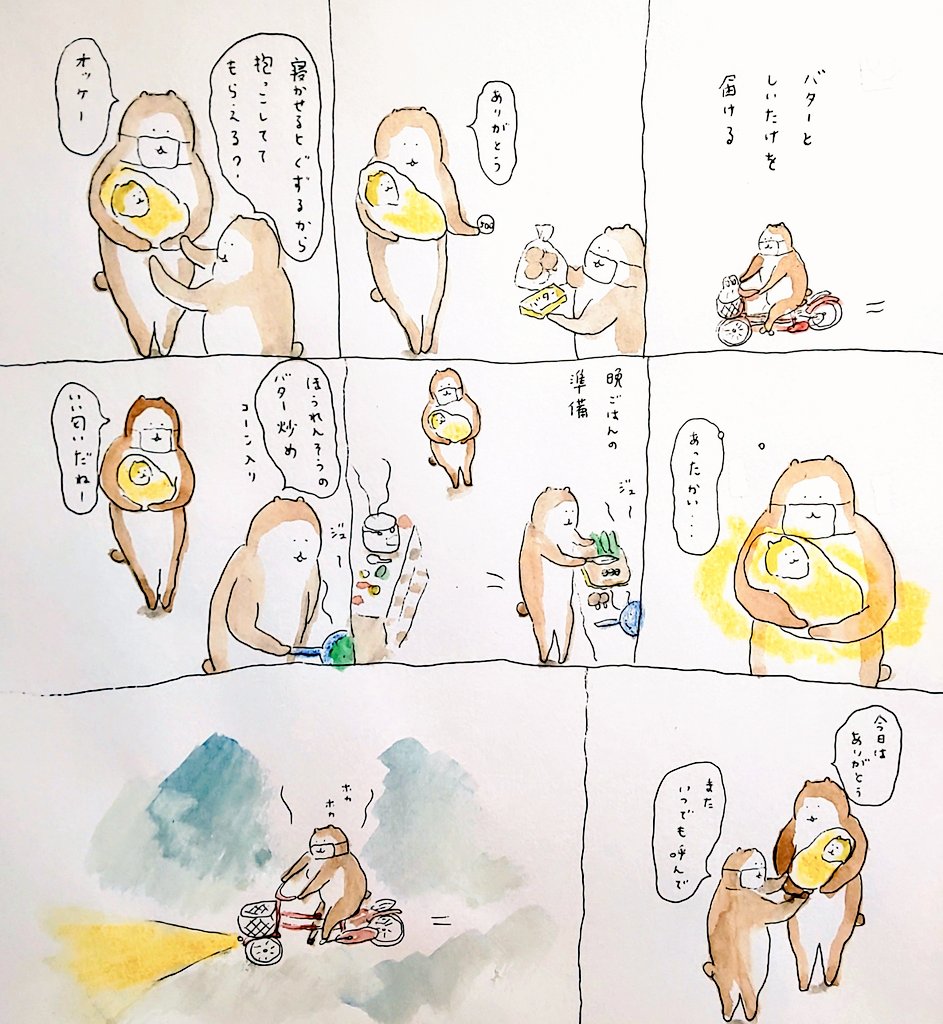 バターと
しいたけを
届ける
ありがとう
500
バター
寝かせるとぐずるから
抱っこしてて
もらえる?
オッケー
あったかい...
晩ごはんの
準備
ジュー
ほうれんそうの
バター炒め
コーン入り
ジュー
いい匂いだねー
今日は
ありがとう
また
いつでも呼んで
ホカ
ホカ